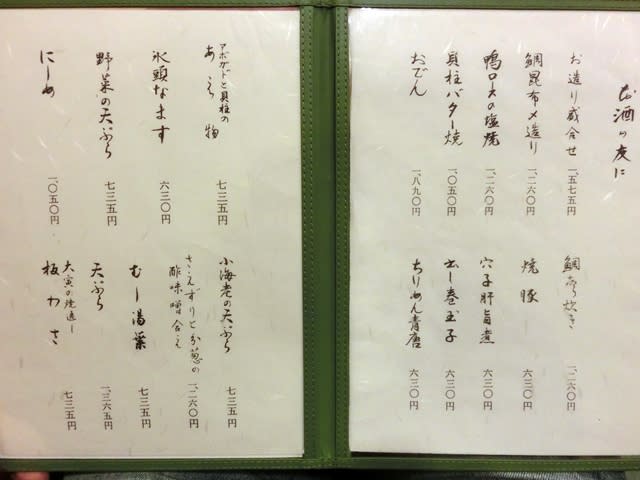 お酒の友に
お造り盛合せ 一、五七五円
鯛昆布〆造り 一、二六〇円
鴨ロースの塩焼 一、二六〇円
貝柱バター焼 一、〇五〇円
おでん 一、八九〇円
鯛あら炊き 一、二六〇円
焼豚 六三〇円
穴子肝旨煮 六三〇円
出し巻玉子 六三〇円
ちりめん青唐 六三〇円
アボガドと貝柱の
あえ物 七三五円
氷頭なます 六三〇円
野菜の天ぷら 七三五円
にしめ 一、〇五〇円
小海老の天ぷら 七三五円
さえずりとお葱の
酢味噌合え 一、二六〇円
むし湯葉 七三五円
天ぷら 一、三六五円
大寅の焼通し
板わさ 七三五円